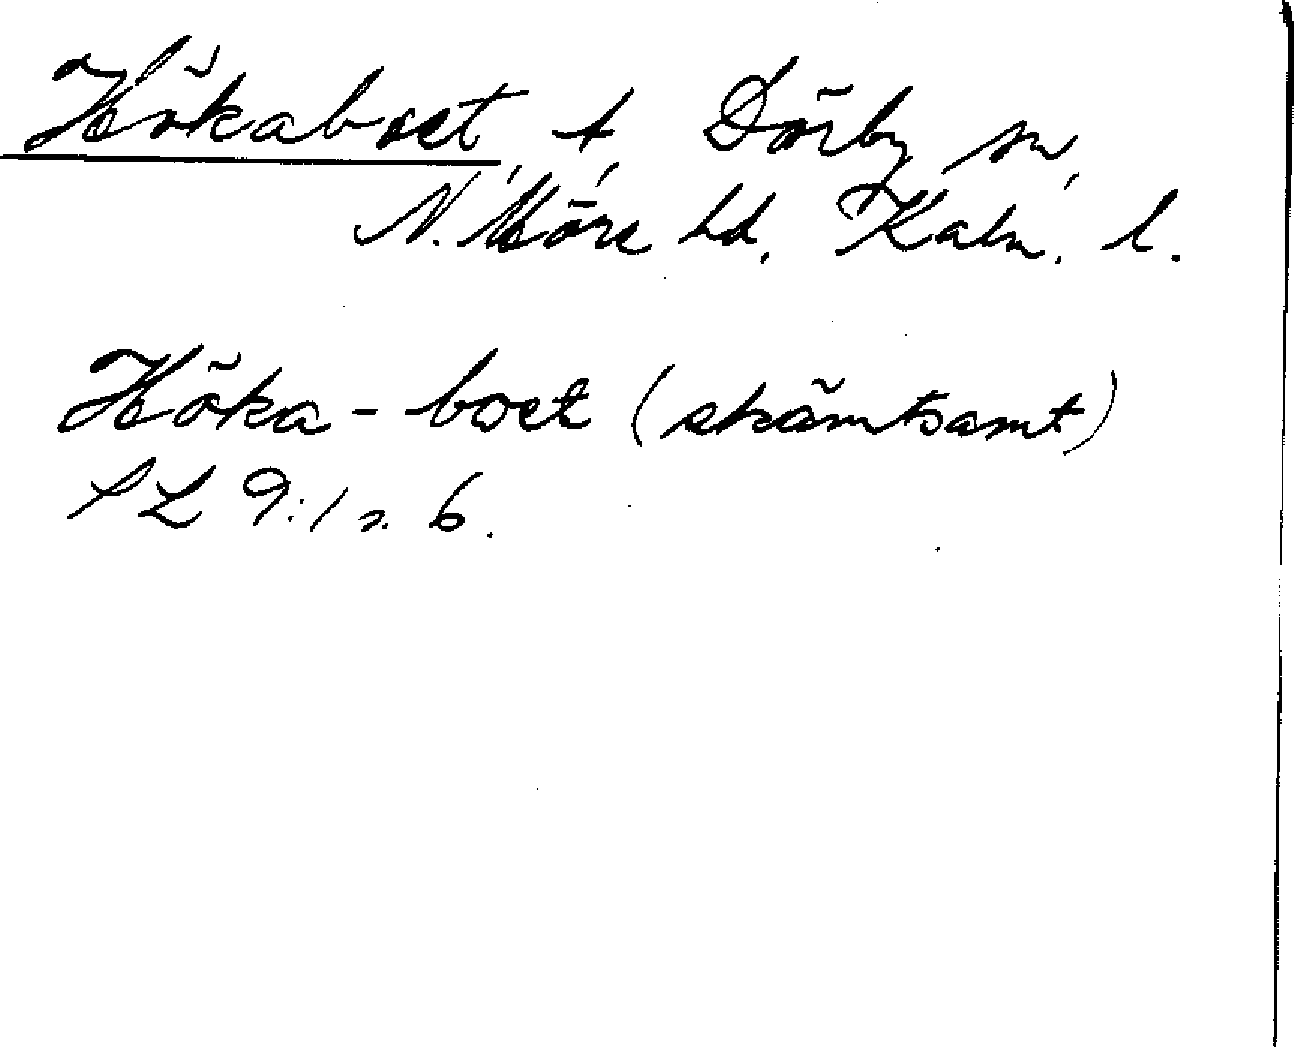 Hökaboet, t, Dörby sn,
N. Möre hd, Kalm. l.
Höka-boet (skämtsamt)
SL 9:1 s. 6.